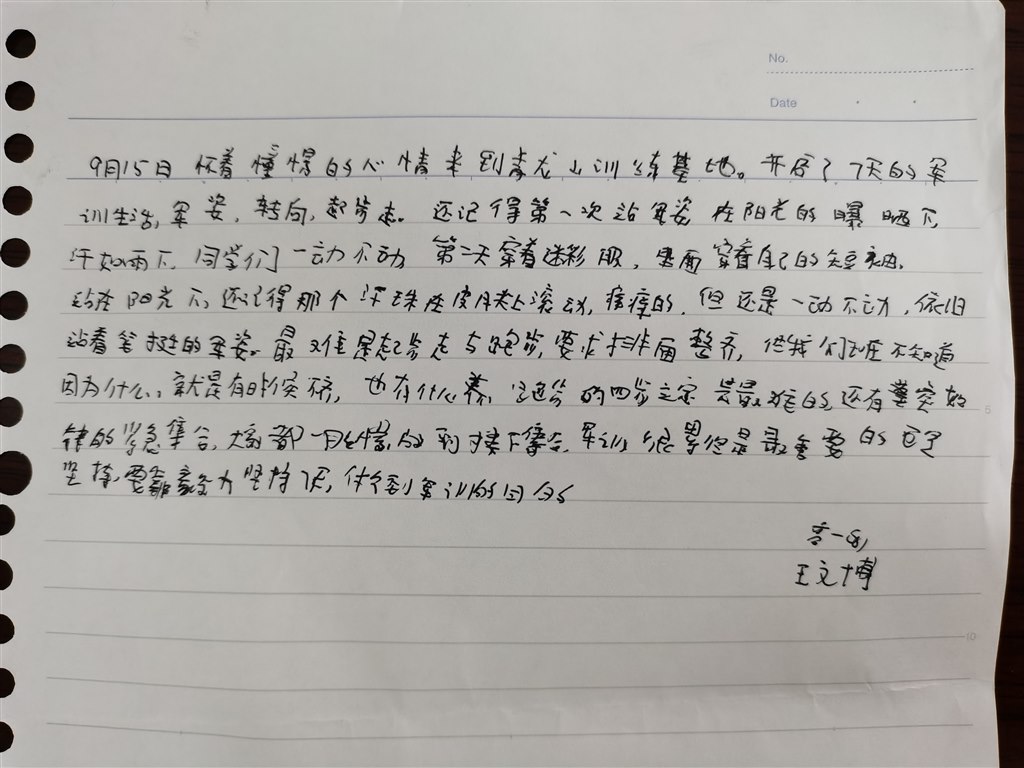 No.
Date
9月15日 怀着憧憬的心情来到青龙山训练基地。开启了7天的军
训生活,军姿,转向,起步走。还记得第一次站军姿 在阳光的曝晒下,
汗如雨下,同学们一动不动 第二天穿着迷彩服,里面穿着自己的短袖。
站在阳光下,还记得那个汗珠在皮肤上滚动,痒痒的,但还是一动不动,依旧
站着笔挺的军姿。最难是起步走与跑步,要求排面整齐,但我们现在不知道
因为什么,就是有时候不齐,也有什么 跑步的四步之 是最难的,还有
的紧急集合,大家都 到楼下集合,军训很累但是最重要的 是
坚持,要靠毅力坚持下,体会到军训的目的
高一
王文博
5
10